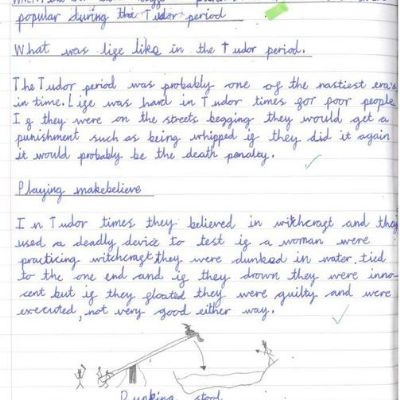 popular during the Tudor period
What was lige like in the Tudor period.
The Tudor period was probably one of the nastiest era's
in time. Lige was hard in Tudor times gor poor people
I g they were on the streets begging they would get a
punishment such as being whipped ig they did it again
it would probably be the death penaley.
Playing makebelieve
In Tudor times they believed in witchcragt and they
used a deadly device to test ig a woman were
practicing witchcragt they were dunked in water tied
to the one end and ig they drown they were inno-
cent but ig they gloated they were guilty and were
executed, not very good either way.
Dunking stool